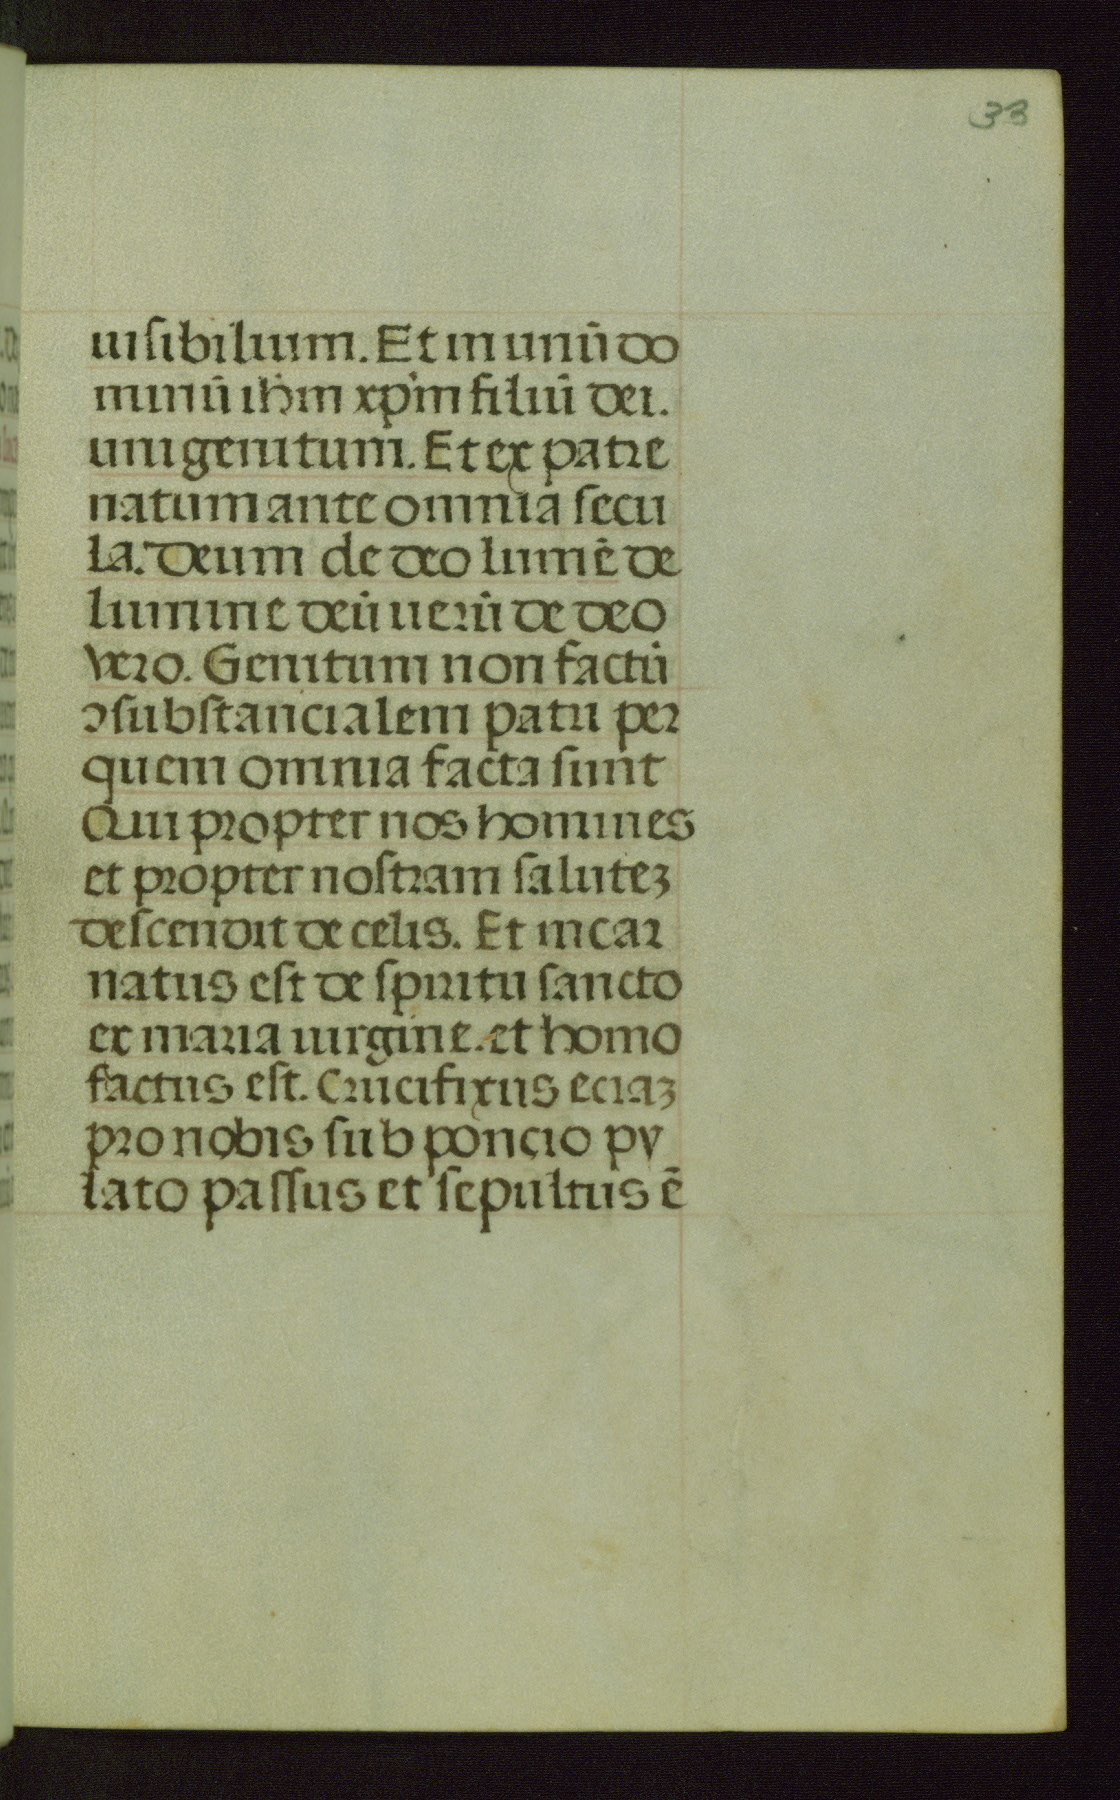 33
uisibilium. Et in unū do
minū ihm xpm filiū dei.
unigenitum. Et ex patre
natum ante omnia secu
la. Deum de deo lumē de
lumine deū uerū de deo
vero. Genitum non factū
ↄsubstancialem patri per
quem omnia facta sunt
Qui propter nos homines
et propter nostram saluteꝫ
descendit de celis. Et incar
natus est de spiritu sancto
ex maria uirgine. et homo
factus est. Crucifixus eciaꝫ
pro nobis sub poncio py
lato passus et sepultus ē